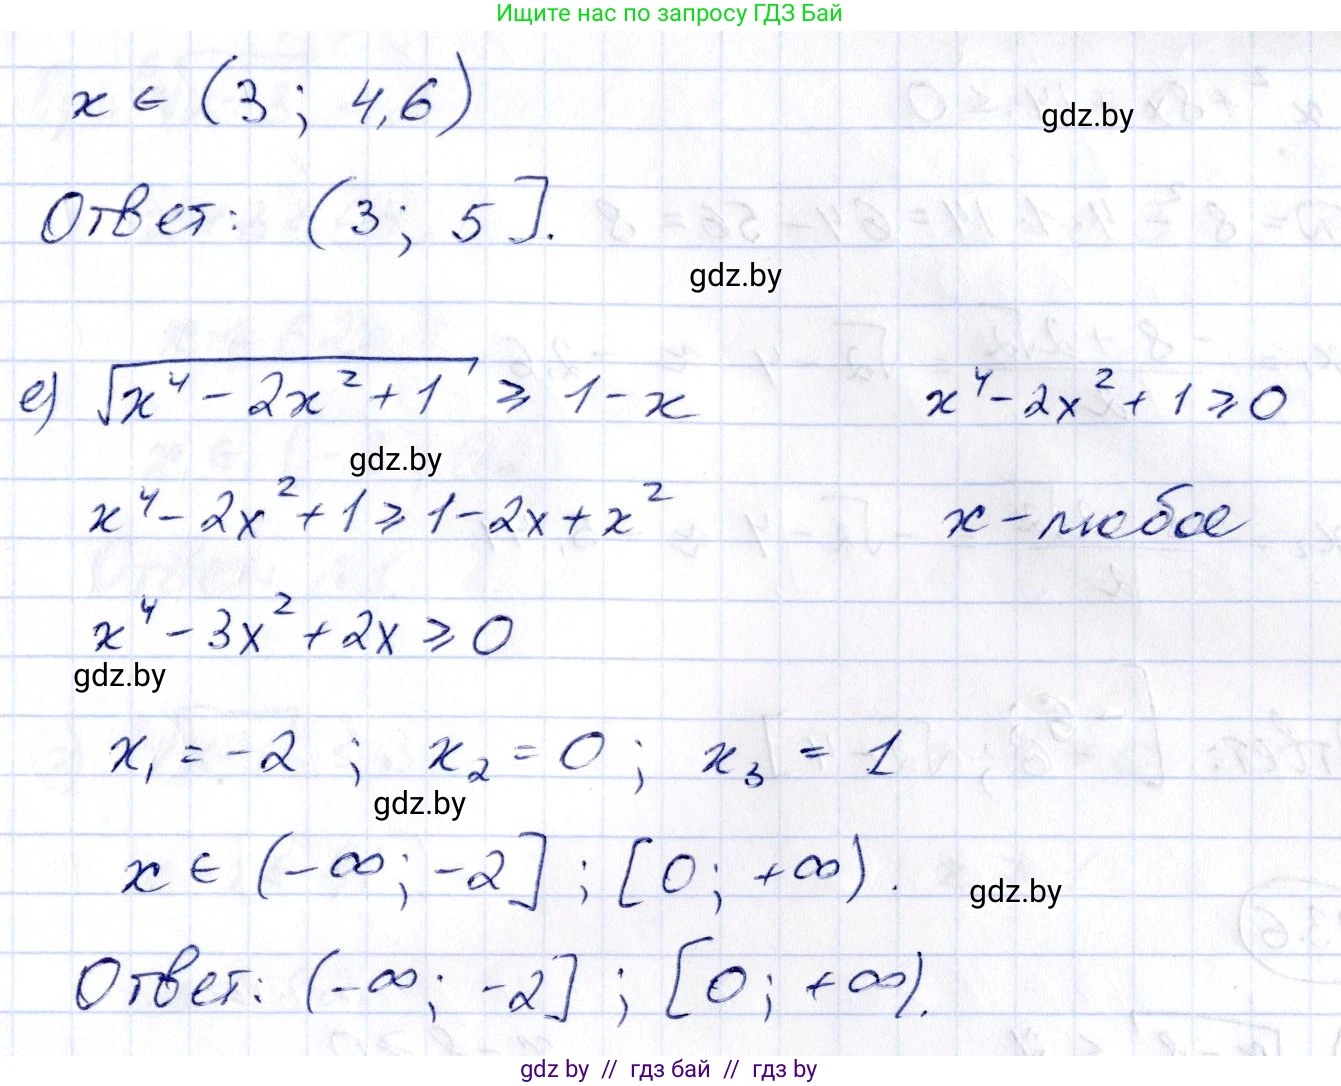 Ищите нас по запросу ГДЗ Бай
x ∈ (3; 4,6)
gdz.by
Ответ: (3; 5].
gdz.by
е) √(x⁴ - 2x² + 1) ⩾ 1 - x    x⁴ - 2x² + 1 ⩾ 0
gdz.by
x⁴ - 2x² + 1 ⩾ 1 - 2x + x²    x - любое
x⁴ - 3x² + 2x ⩾ 0
gdz.by
x₁ = -2 ; x₂ = 0 ; x₃ = 1
gdz.by
x ∈ (-∞; -2] ; [0; +∞).
gdz.by
Ответ: (-∞; -2] ; [0; +∞).
gdz by // гдз бай // гдз by